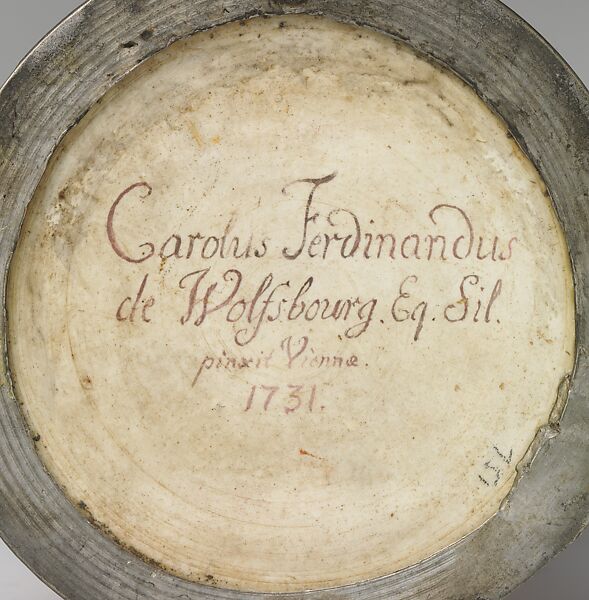 Carolus Ferdinandus
de Wolfsbourg. Eq. Sil.
pinxit Viennæ.
1731.